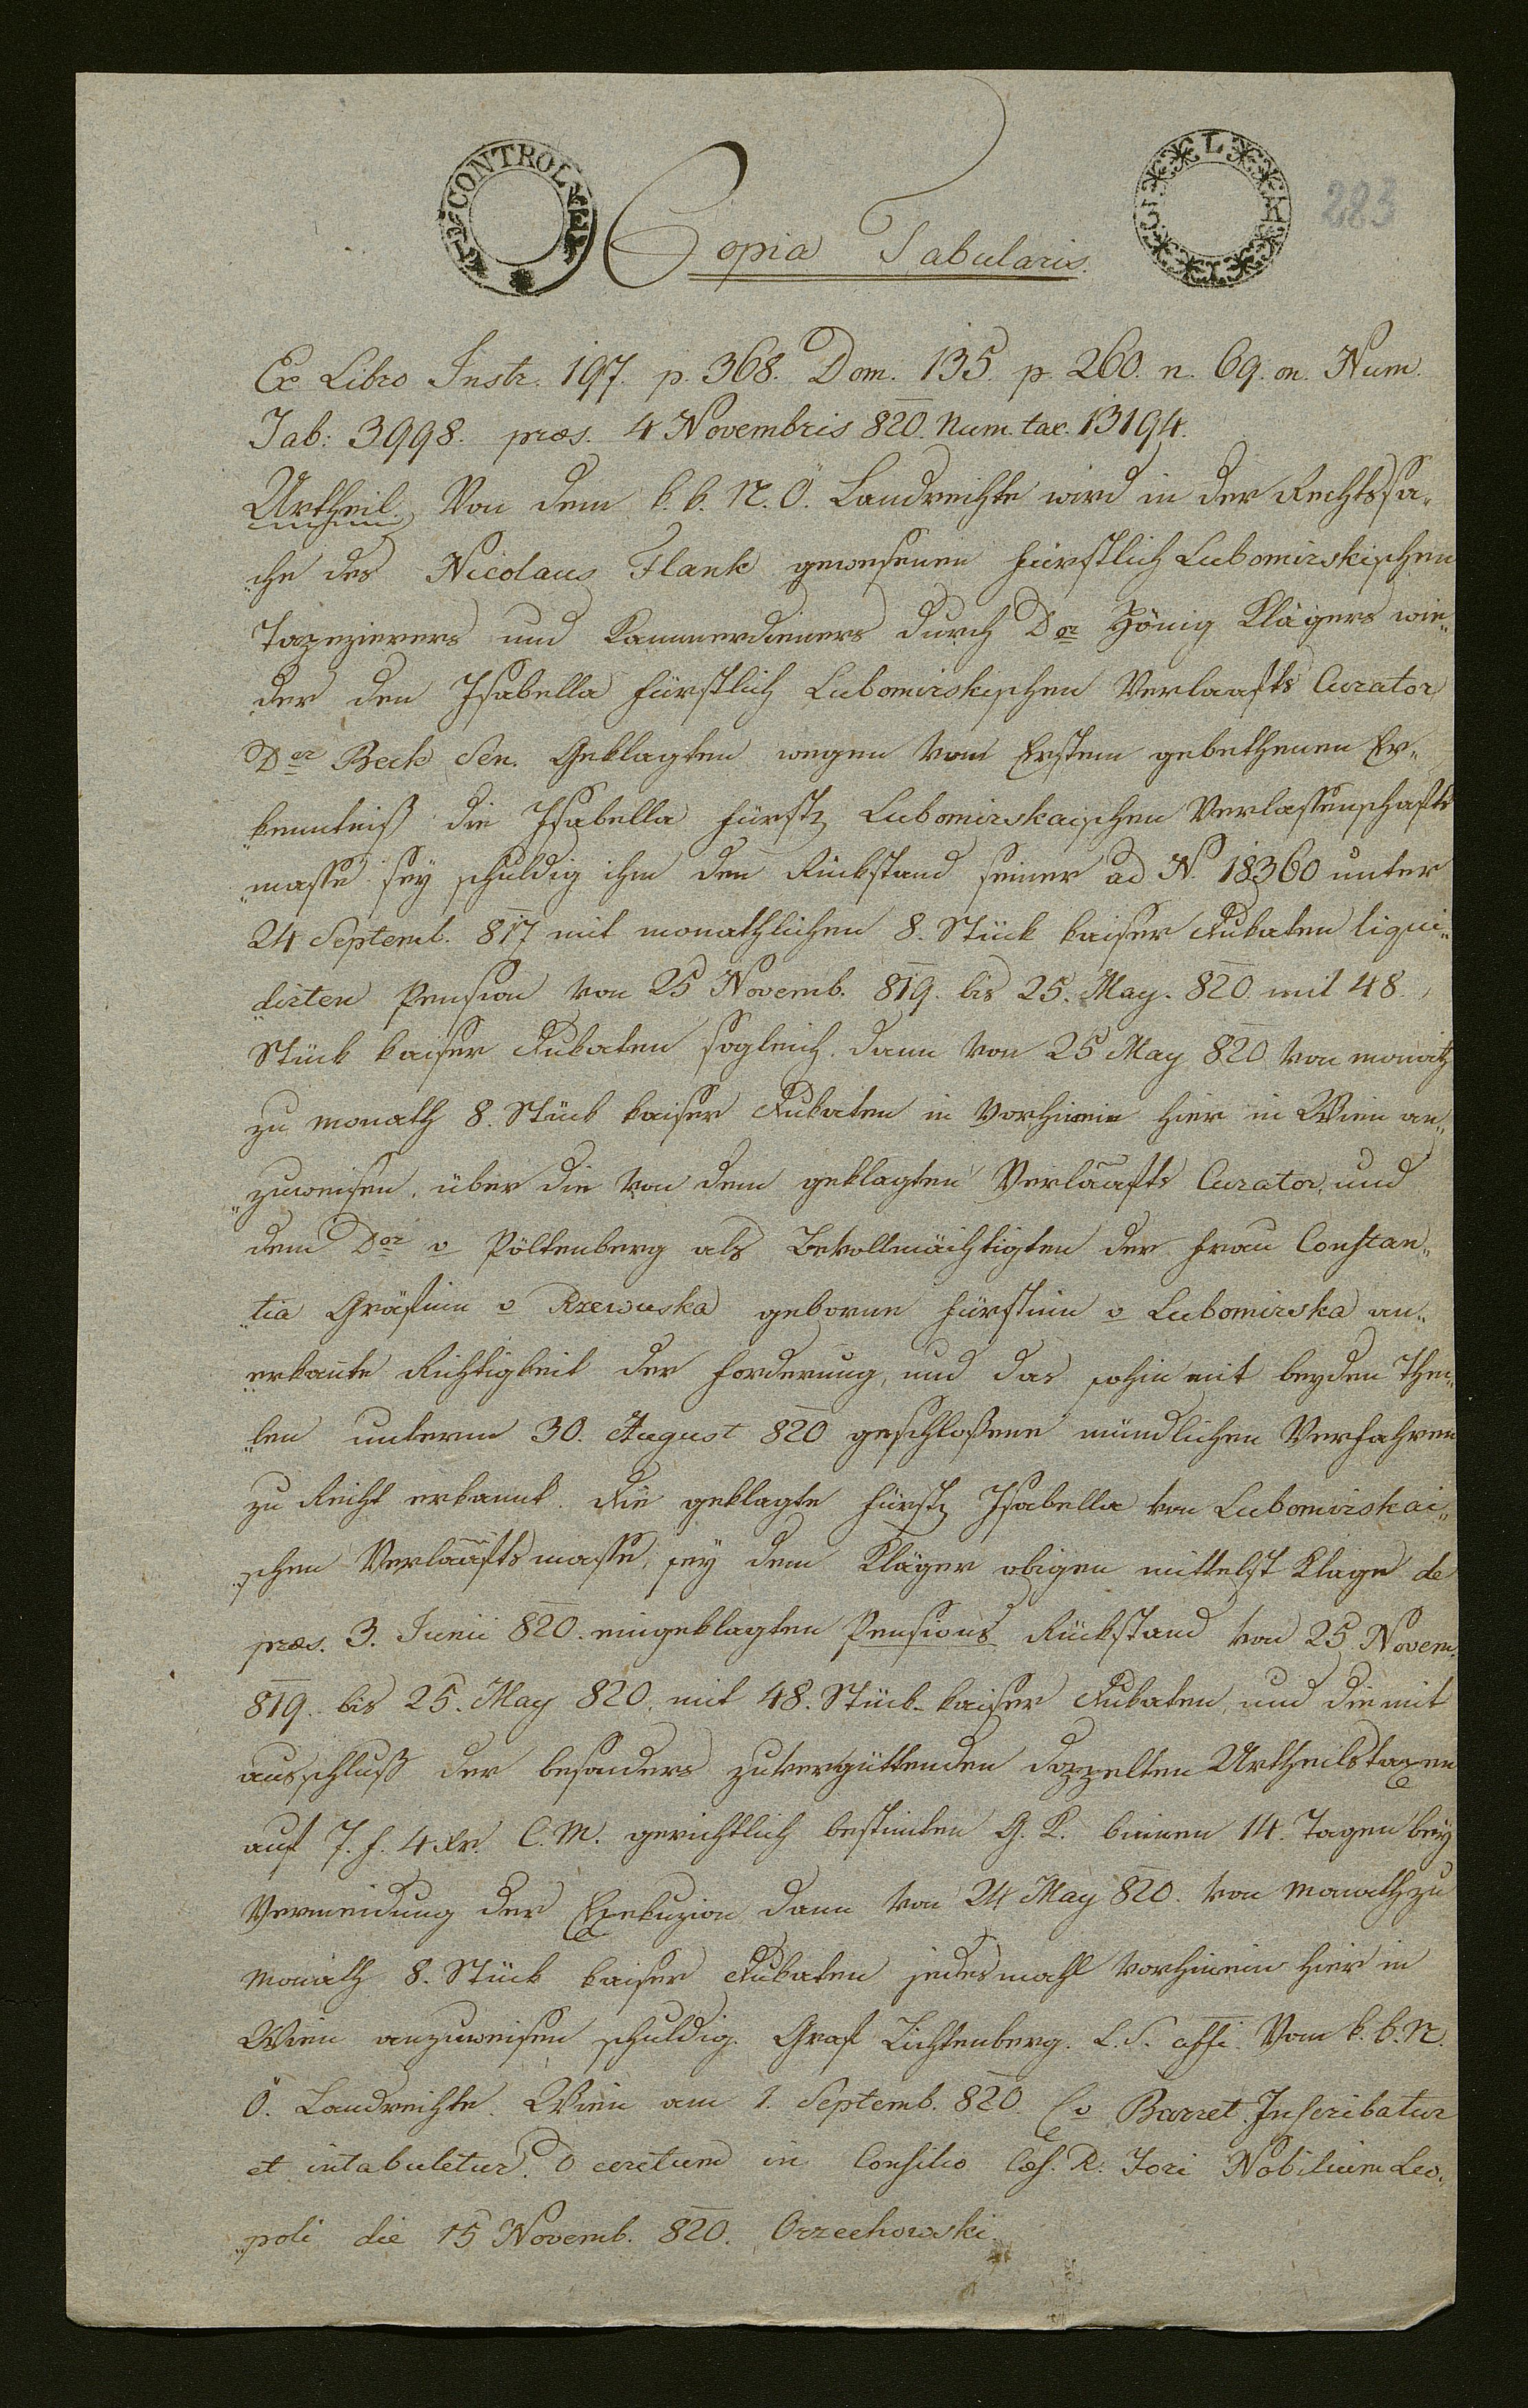 CONTROL
L
283
Copia Tabularis.
Ex Libro Instr. 197. p. 368. Dom. 135. p. 260. n. 69. on. Num.
Tab: 3998. præs. 4 Novembris 820. Num. tax. 13194.
Urtheil. Von dem k. k. N. Ö. Landrechte wird in der Rechtssa„
„che des Nicolaus Flank gewesenen fürstlich Lubomirskischen
Tapezierers und Kammerdieners durch Dor Hönig Klägers wie„
der den Isabella fürstlich Lubomirskischen Verlaafts Curator
Dor Beck Sen. Geklagten wegen vom Erstern gebethenen Er„
„kenntniß die Isabella fürstl Lubomirskaischen Verlassenschafts
„masse sey schuldig ihm den Rückstand seiner ad N. 18360 unter
24 Septemb. 817 mit monathlichen 8. Stück kaiser Dukaten liqui„
„dirten Pension von 25 Novemb. 819. bis 25. May. 820. mit 48.
Stück kaiser Dukaten sogleich. dann von 25 May 820 von monath
zu monath 8. Stück kaiser Dukaten in vorhinein hier in Wien an„
„zuweisen. über die von dem geklagten Verlaafts Curator, und
dem Dor v Pöltenberg als Bevollmächtigten der Frau Constan„
„tia Gräfinn v Rzewuska geborne Fürstinn v Lubomirska an„
„erkante Richtigkeit der Forderung, und das sohin mit beyden Thei„
„len unterm 30. August 820 geschloßene mündlichen Verfahren
zu Recht erkannt. Die geklagte fürstl Isabella von Lubomirskai„
„schen Verlaaftsmasse, sey dem Kläger obigen mittelst Klage de
præs. 3. Junii 820. eingeklagten Pensions Rückstand von 25 Novem.
819. bis 25. May 820. mit 48. Stück kaiser Dukaten, und die mit
ausschluß der besonders zuvergüttenden doppelten Urtheilstaxen
auf 7. f. 4 Xr. C. M. gerichtlich bestimten G. K. binnen 14. Tagen bey
Vermeidung der Exekuzion dann von 24 May 820. von Monath zu
Monath 8. Stück kaiser Dukaten jedesmahl vorhinein hier in
Wien anzuweisen schuldig. Graf Lichtenberg. L. S. Vom k. k. N.
Ö. Landrechte. Wien am 1. Septemb. 820. Barret. Inscribatur
et intabuletur. Decretum in Consilio Cæs. R. Fori Nobilium Leo„
„poli die 15 Novemb. 820. Orzechowski.